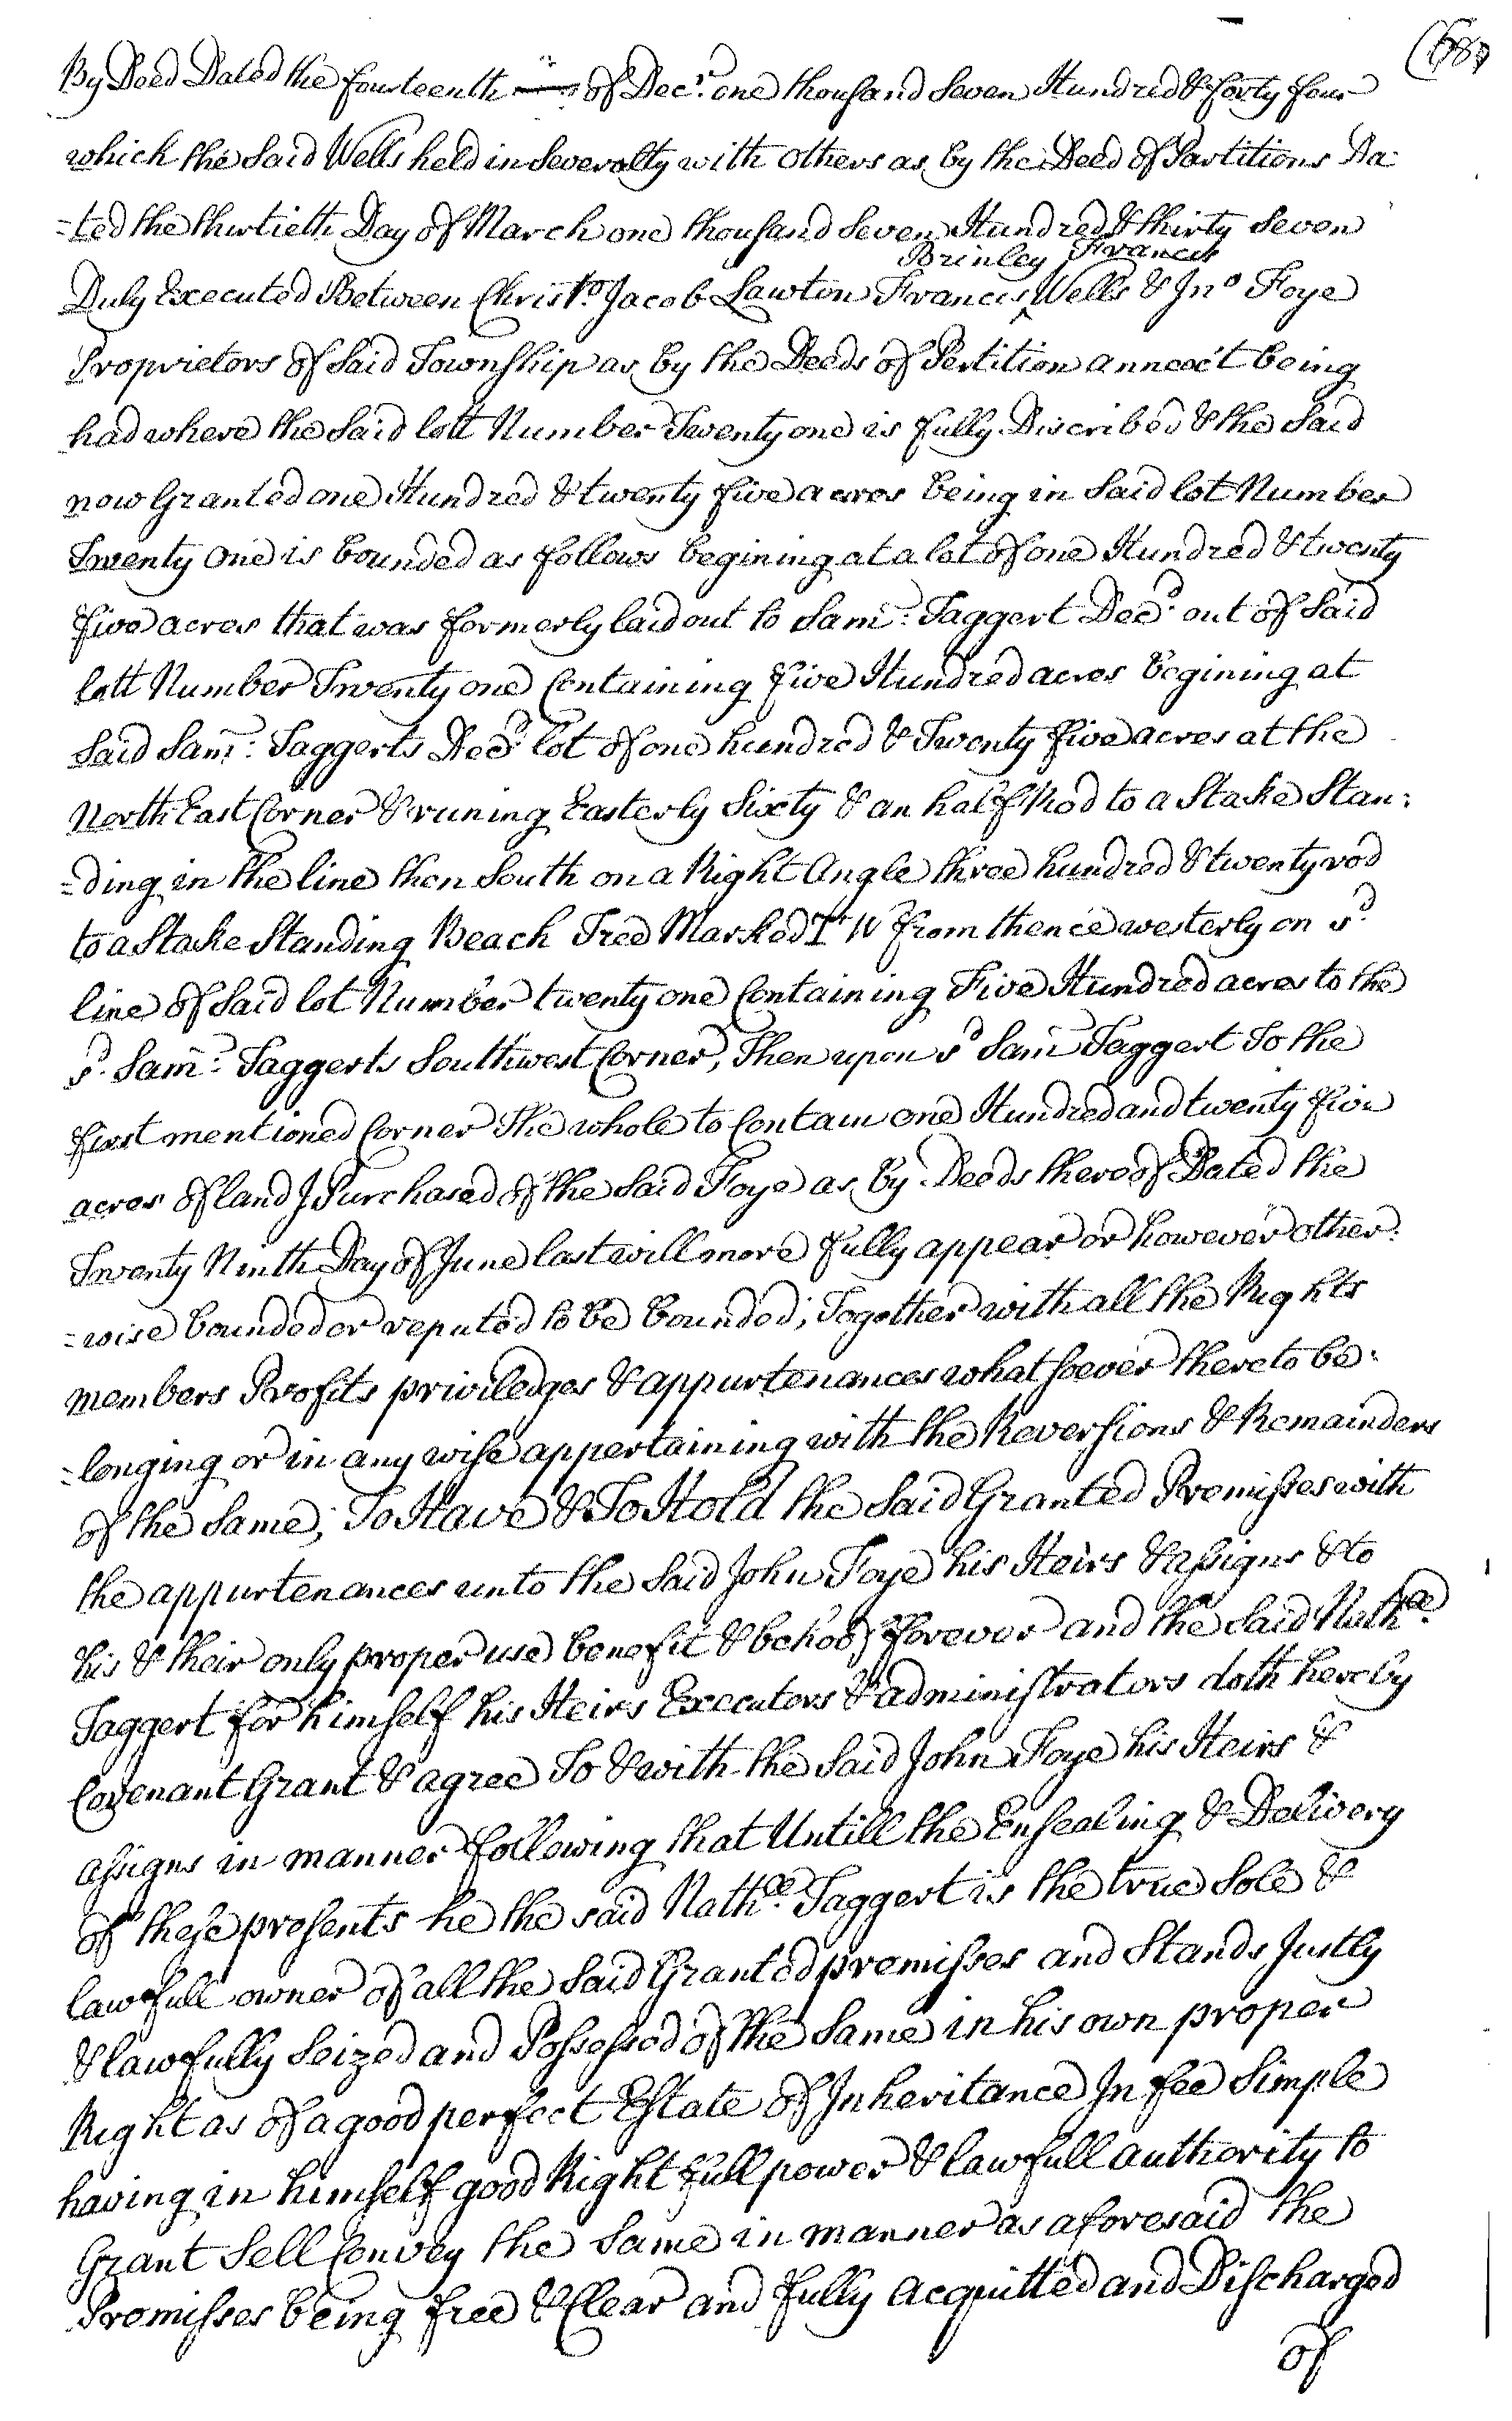 (68)
By Deed Dated the fourteenth of Decr. one thousand Seven Hundred & forty four
which the Said Wells held in Severalty with Others as by the Deed of Partitions Da-
=ted the thirtieth Day of March one thousand Seven Hundred & thirty Seven
Brinley Francis
Duly Executed Between Christo. Jacob Lawton Francis ^ Wells & Jno Foye
Proprietors of Said Township as by the Deeds of Pertition annext being
had where the Said lott Number Twenty one is fully Discribed & the Said
now Granted one Hundred & twenty five acres being in Said lot Number
Twenty One is bounded as follows begining at a lot of one Hundred & twenty
five acres that was formerly laid out to Sam: Taggert Decd. out of Said
lott Number Twenty one Containing five Hundred acres begining at
Said Sam: Taggerts Decd. lot of one hundred & Twenty five acres at the
North East Corner & runing Easterly Sixty & an half Rod to a Stake Stan:
=ding in the line then South on a Right Angle three hundred & twenty rod
to a Stake Standing Beach Tree Marked I W from thence westerly on sd.
line of Said lot Number twenty one Containing Five Hundred acres to the
sd. Sam: Taggerts Southwest Corner, Then upon sd Sam Taggert To the
first mentioned Corner The whole to Contain one Hundred and twenty five
acres of land I Purchased of the Said Foye as by Deeds thereof Dated the
Twenty Ninth Day of June last will more fully appear or however other:
=wise bounded or reputed to be bounded; Together with all the Rights
members Profits priviledges & appurtenances whatsoever thereto be:
=longing or in any wise appertaining with the Reversions & Remainders
of the Same; To Have & To Hold the Said Granted Premisses with
the appurtenances unto the Said John Foye his Heirs & assigns & to
his & their only proper use benefit & behoof forever and the Said Nathll.
Taggert for himself his Heirs Executors & administrators doth hereby
Covenant Grant & agree To & with the Said John Foye his Heirs &
assigns in manner following that Untill the Ensealing & Delivery
of these presents he the said Nathll. Taggert is the true Sole &
lawfull owner of all the Said Granted premisses and Stands Justly
& lawfully Seized and Possessed of the Same in his own proper
Right as of a good perfect Estate of Inheritance In fee Simple
having in himself good Right full power & lawfull authority to
Grant Sell Convey the Same in manner as aforesaid the
Premisses being free & Clear and fully acquitted and Discharged
of